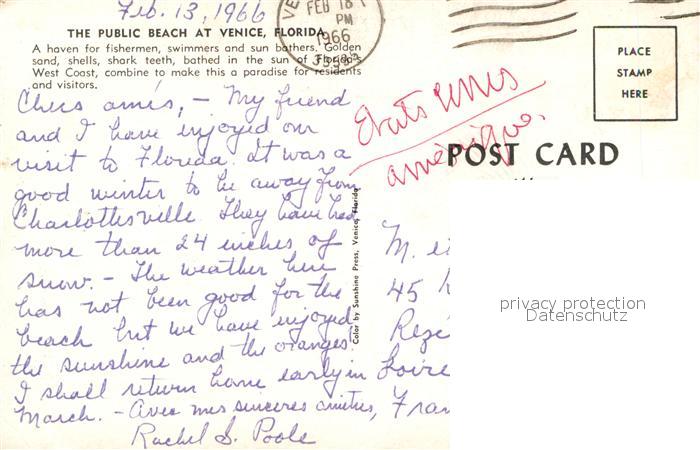 Feb. 13, 1966
THE PUBLIC BEACH AT VENICE, FLORIDA
A haven for fishermen, swimmers and sun bathers. Golden
sand, shells, shark teeth, bathed in the sun of Florida's
West Coast, combine to make this a paradise for residents
and visitors.
Chers amis, – My friend
and I have enjoyed our
visit to Florida. It was a
good winter to be away from
Charlottesville. They have had
more than 24 inches of
snow. – The weather here
has not been good for the
beach but we have enjoyed
the sunshine and the oranges.
I shall return home early in
March. – Avec mes sinceres amities,
Rachel S. Poole
VE
FEB 18
PM
1966
Etats Unis
amérique.
PLACE
STAMP
HERE
POST CARD
Color by Sunshine Press, Venice, Florida
M. et
45
Rezé
Loire
Fran
privacy protection
Datenschutz